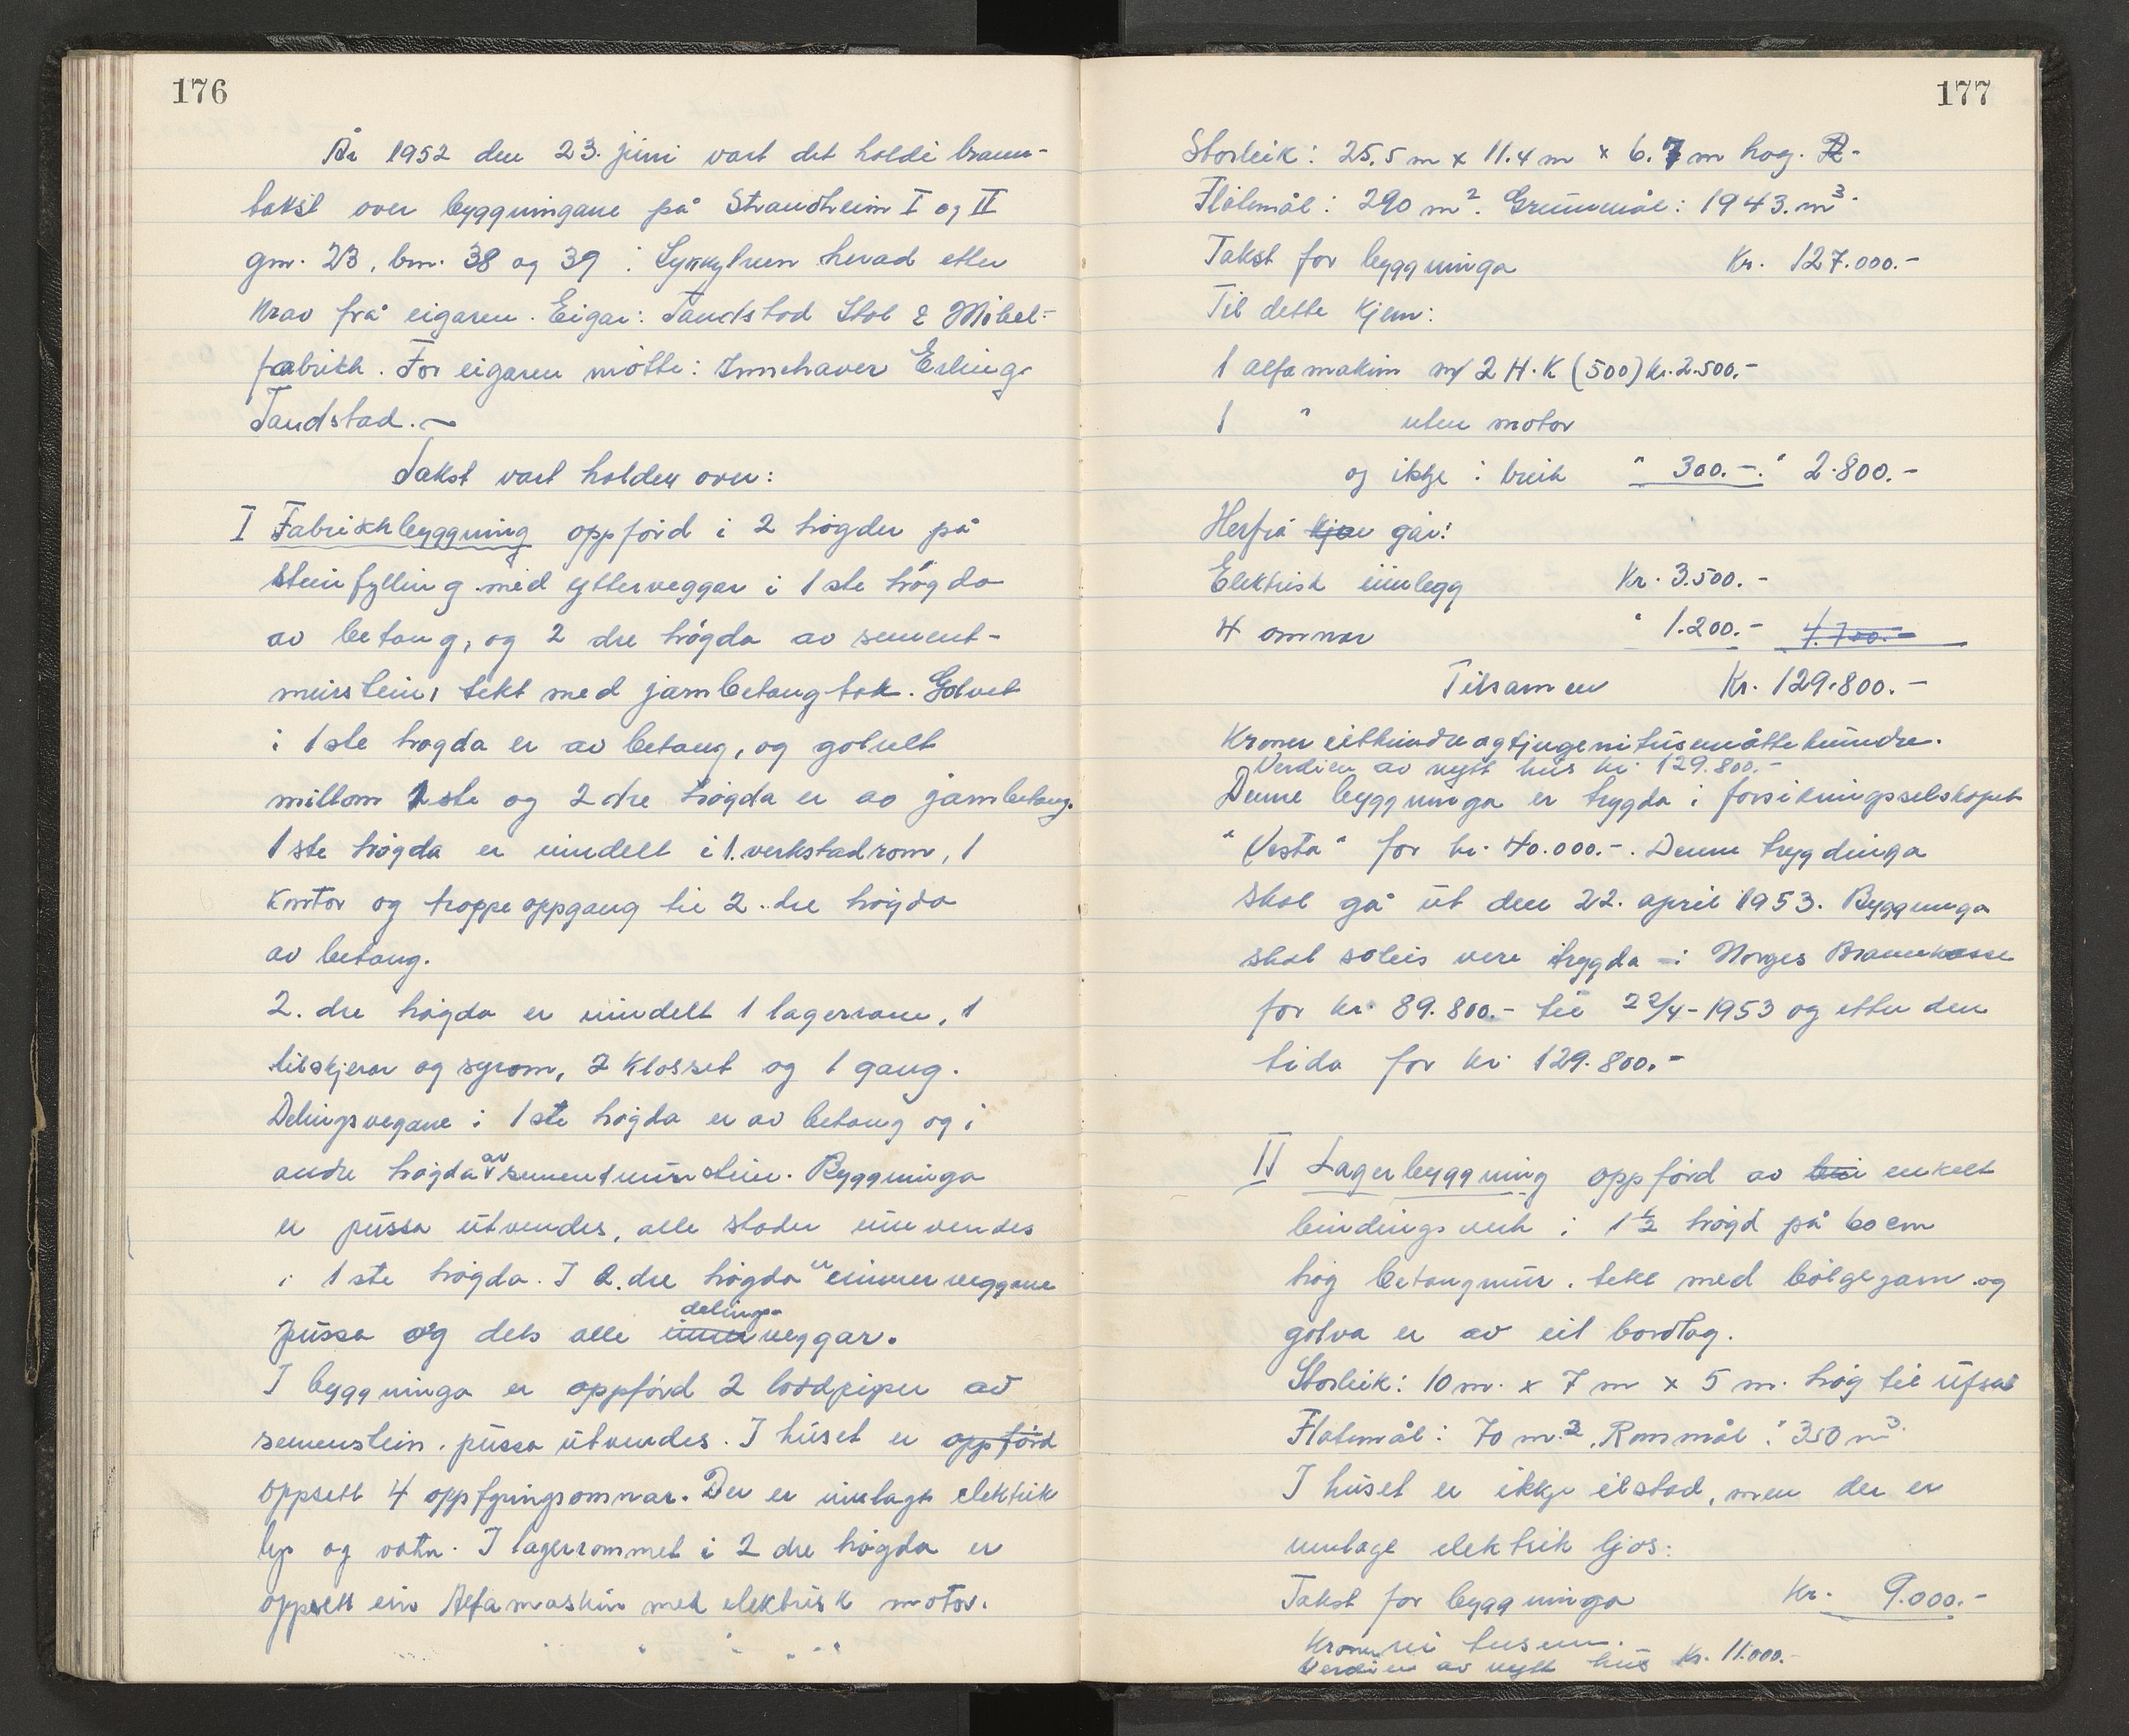 176
År 1952 den 23. juni vart det holdt brann-
takst over byggningane på Strandheim I og II
gnr. 23, bnr. 38 og 39 i Sykkylven herad etter
krav frå eigaren. Eigar: Tandstad Stol & Møbel-
fabrikk. For eigaren møtte: Innehaver Erling
Tandstad. ~
Takst vart holden over:
I Fabrikkbyggning oppförd i 2 högder på
steinfylling med ytterveggar i 1ste högda
av betong, og 2dre högda av sement-
murstein, tekt med jarnbetong tak. Golvet
i 1ste högda er av betong, og golvett
millom 1ste og 2dre högda er av jarnbetong.
1ste högda er inndelt i 1. verkstadrom, 1
kontor og trappeoppgang til 2.dre högda
av betong.
2.dre högda er inndelt 1 lagerrom, 1
tilskjerar og syrom, 2 klosset og 1 gang.
Delingsvegane i 1ste högda er av betong og i
andre högda av sementmurstein. Byggninga
er pussa utvendes, alle stader innvendes
i 1ste högda. I 2.dre högda er einner veggane
pussa og dels alle inner delings veggar.
I byggninga er oppförd 2 loddpiper av
semenstein, pussa utvendes. I huset er oppförd
oppsett 4 oppfyringsomnar. Der er innlagt elektrik
lys og vatn. I lagerrommet i 2dre högda er
oppsett ein Alfamaskin med elektrisk motor.
177
Storleik: 25,5 m x 11.4 m x 6.7 m høg. R-
Flatemål: 290 m². Grunnmål: 1943. m³.
Takst for byggninga Kr. 127.000.-
Til dette kjem:
1 alfamakin m/ 2 H.K (500) kr. 2.500.-
1 " uten motor
og ikkje i bruk " 300.-. " 2.800.-
Herfrå kjem går:
Elektrisk innlegg Kr. 3.500.-
4 omnar " 1.200.- 4.700.-
Tilsamen Kr. 129.800.-
Kroner eithundreogtjugenitusenåttehundre.
Verdien av nytt hus kr. 129.800.-
Denne byggninga er trygda i forsikringsselskapet
"Vesta" for kr. 40.000.-. Denne trygdinga
skal gå ut den 22. april 1953. Byggninga
skal soleis vere trygda i Norges Brannkasse
for kr. 89.800.- til 22/4-1953 og etter den
tida for kr. 129.800.-
II Lagerbyggning oppförd av enkelt
bindingsverk i 1½ högd på 60 cm
høg betongmur. tekt med bölgejarn og
golva er av eit bordlag.
Storleik: 10 m. x 7 m x 5 m. høg til ufsa
Flatemål: 70 m.². Rommål: 350 m³.
I huset er ikkje eilstad, men der er
innlagt elektrik ljos:
Takst for byggninga Kr. 9.000.-
Kroner ni tusen.
Verdien av nytt hus Kr. 11.000.-